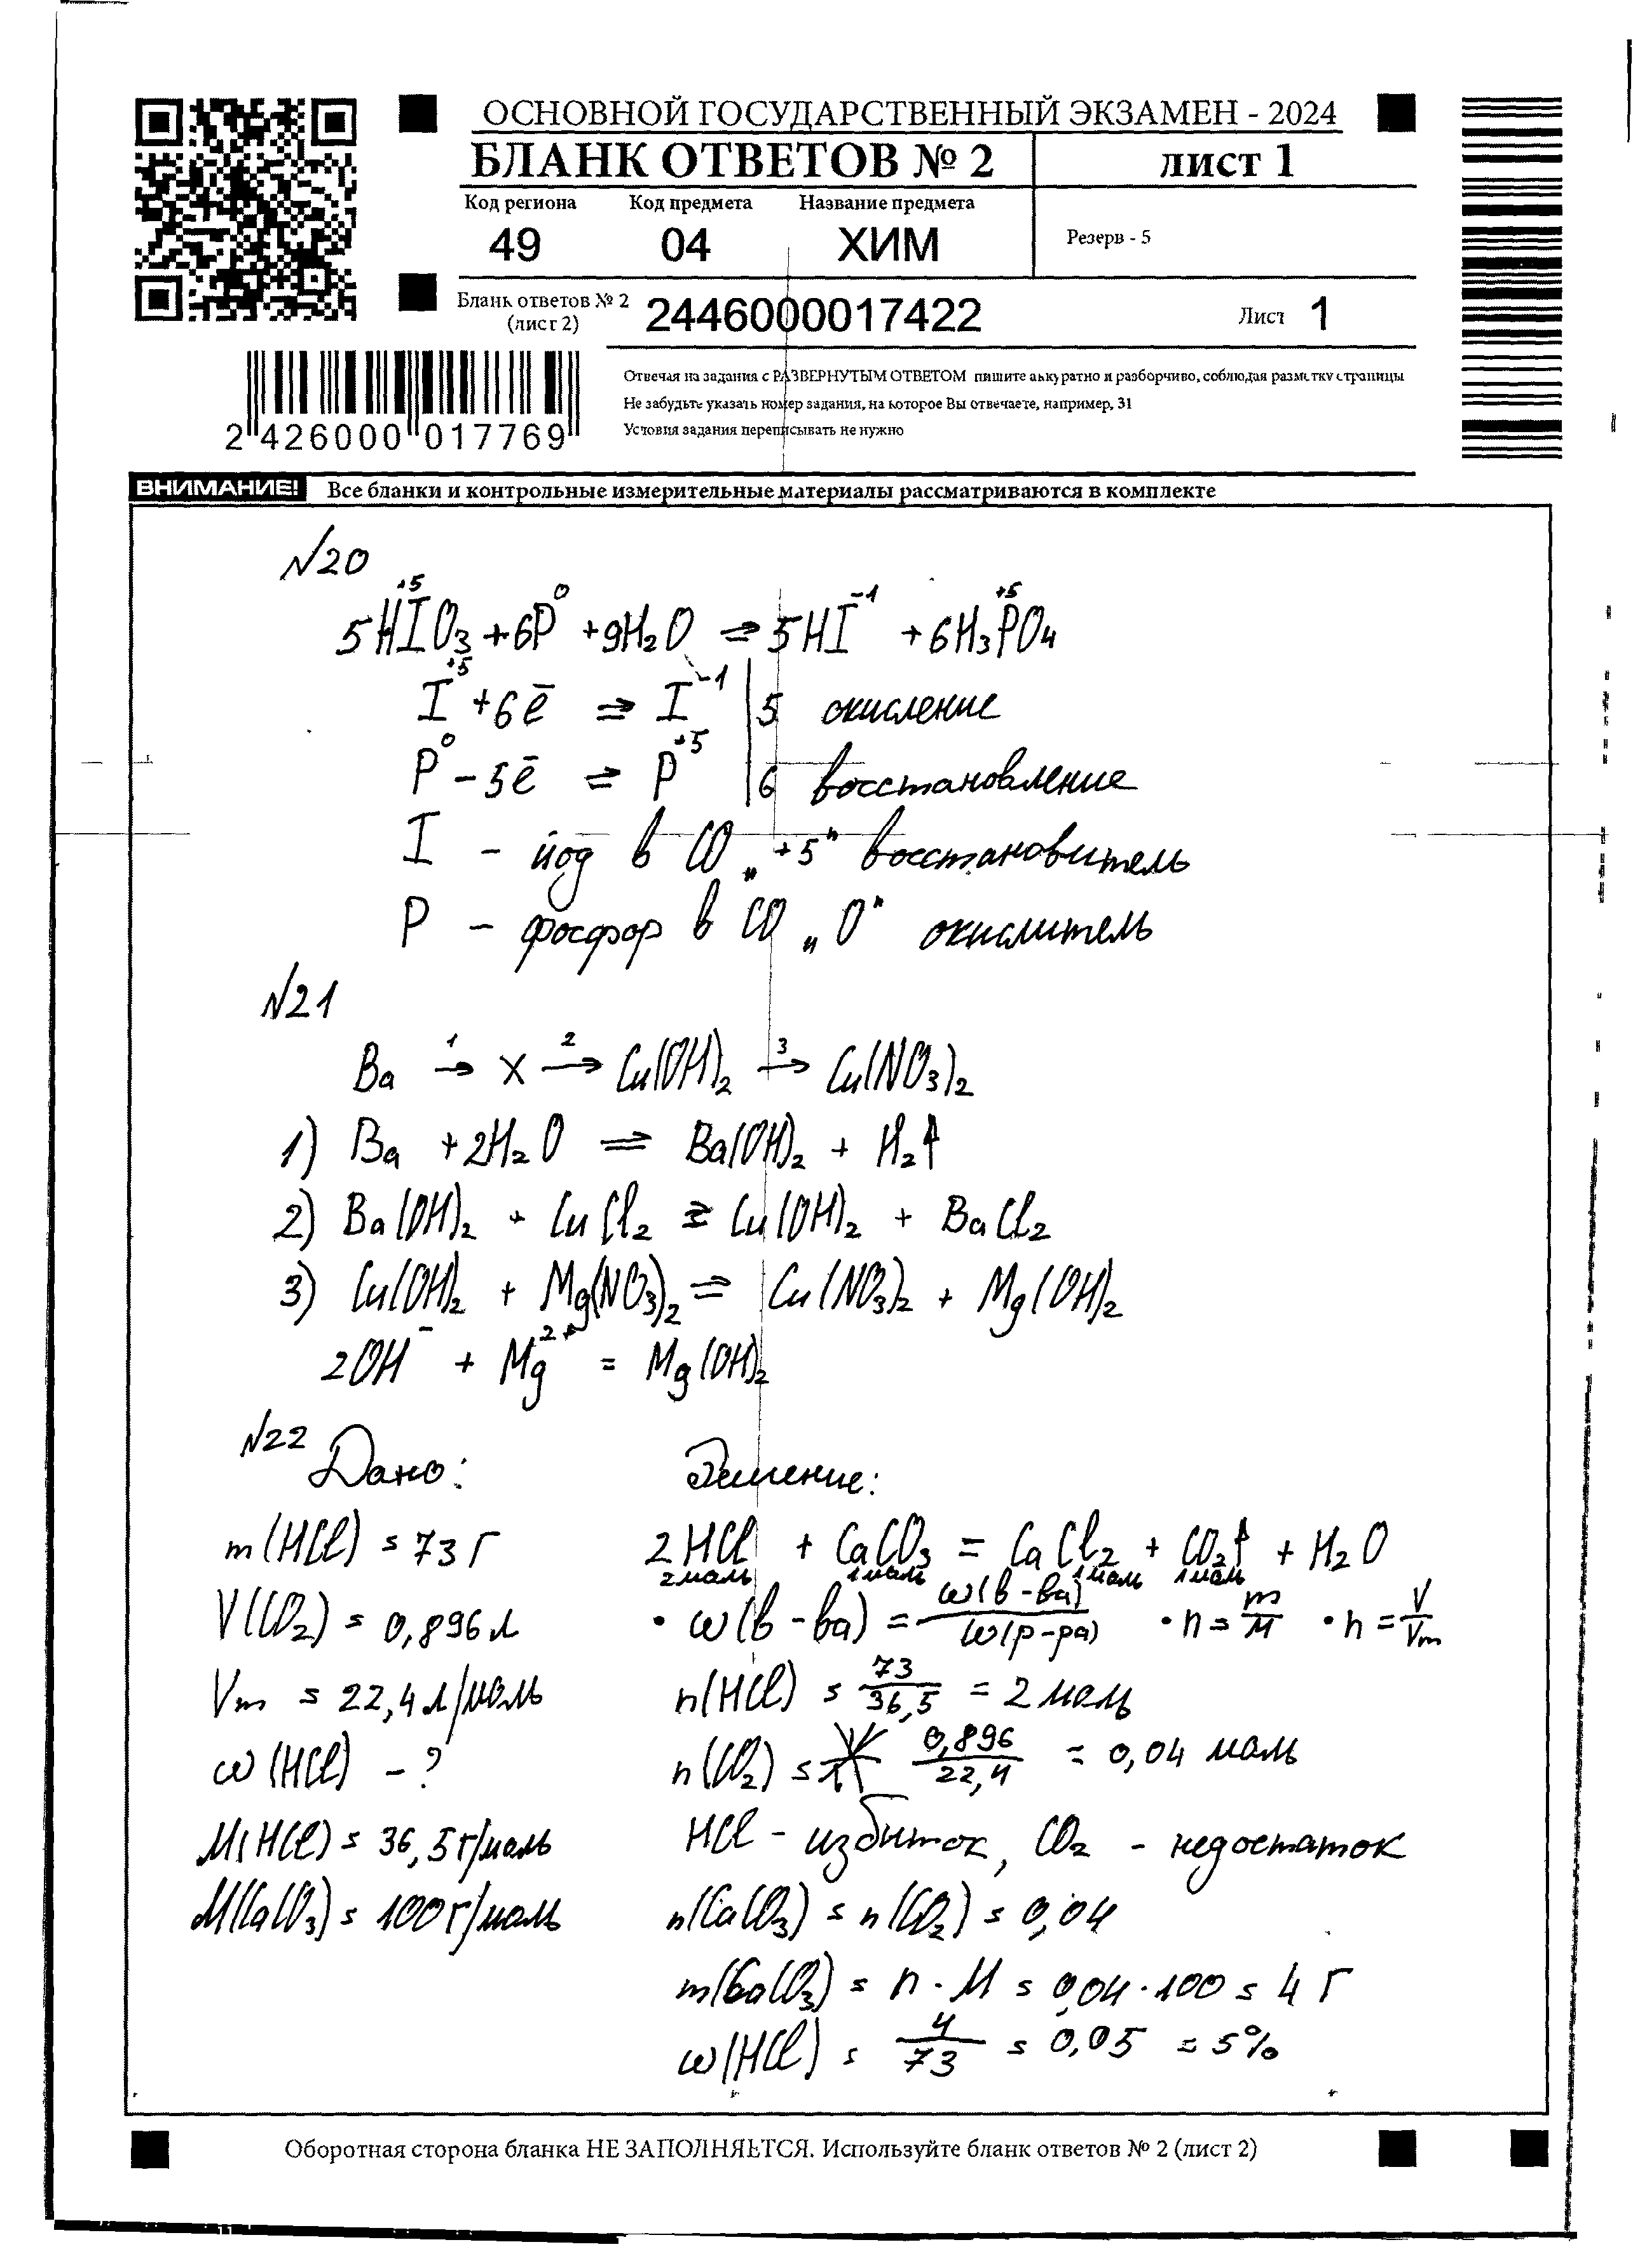 ОСНОВНОЙ ГОСУДАРСТВЕННЫЙ ЭКЗАМЕН - 2024
БЛАНК ОТВЕТОВ № 2
лист 1
Код региона Код предмета Название предмета
49 04 ХИМ
Резерв - 5
Бланк ответов № 2 (лист 2) 2446000017422 Лист 1
2 426000 017769
Отвечая на задания с РАЗВЕРНУТЫМ ОТВЕТОМ пишите аккуратно и разборчиво, соблюдая разметку страницы
Не забудьте указать номер задания, на которое Вы отвечаете, например, 31
Условия задания переписывать не нужно
ВНИМАНИЕ! Все бланки и контрольные измерительные материалы рассматриваются в комплекте
№20
5HI⁺⁵O₃ + 6P⁰ + 9H₂O = 5HI⁻¹ + 6H₃P⁺⁵O₄
I⁺⁵ + 6ē = I⁻¹ | 5 окисление
P⁰ - 5ē = P⁺⁵ | 6 восстановление
I - йод в СО „+5" восстановитель
P - фосфор в СО „0" окислитель
№21
Ba →¹ X →² Cu(OH)₂ →³ Cu(NO₃)₂
1) Ba + 2H₂O = Ba(OH)₂ + H₂↑
2) Ba(OH)₂ + CuCl₂ = Cu(OH)₂ + BaCl₂
3) Cu(OH)₂ + Mg(NO₃)₂ = Cu(NO₃)₂ + Mg(OH)₂
2OH⁻ + Mg²⁺ = Mg(OH)₂
№22
Дано:
m(HCl) = 73 г
V(CO₂) = 0,896 л
Vm = 22,4 л/моль
ω(HCl) - ?
M(HCl) = 36,5 г/моль
M(CaCO₃) = 100 г/моль
Решение:
2HCl + CaCO₃ = CaCl₂ + CO₂↑ + H₂O
2 моль 1 моль 1 моль 1 моль
• ω(в-ва) = ω(в-ва)/ω(р-ра) • n = m/M • n = V/Vm
n(HCl) = 73/36,5 = 2 моль
n(CO₂) = 0,896/22,4 = 0,04 моль
HCl - избиток, CO₂ - недостаток
n(CaCO₃) = n(CO₂) = 0,04
m(CaCO₃) = n · M = 0,04 · 100 = 4 г
ω(HCl) = 4/73 = 0,05 = 5%
Оборотная сторона бланка НЕ ЗАПОЛНЯЕТСЯ. Используйте бланк ответов № 2 (лист 2)